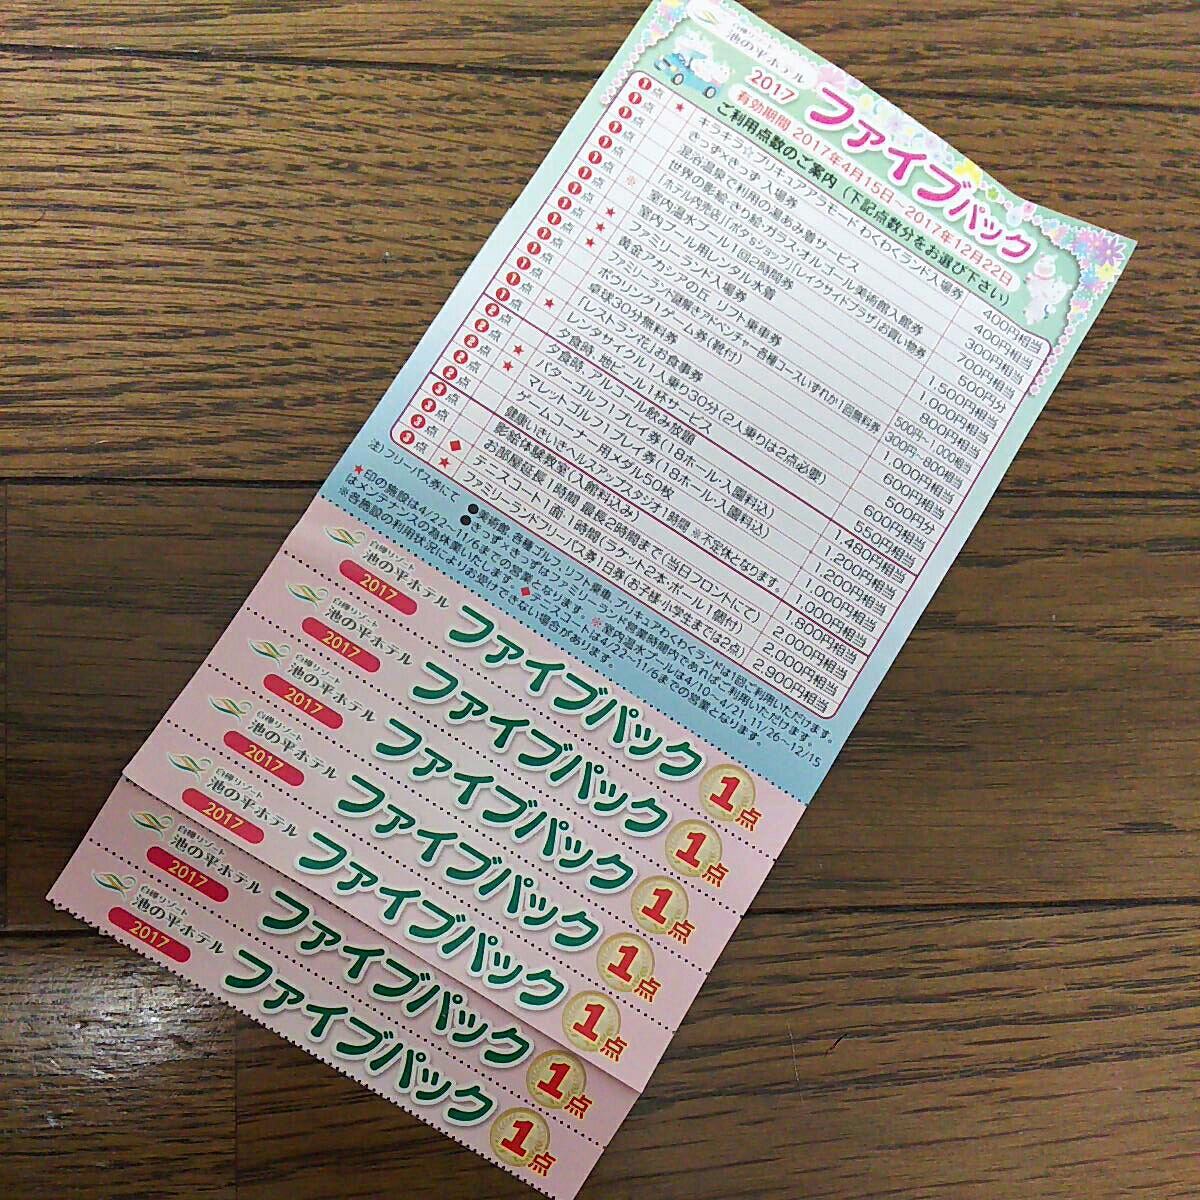 白樺リゾート
池の平ホテル
2017 ファイブパック
有効期間 2017年4月15日～2017年12月22日
ご利用点数のご案内（下記点数分をお選び下さい）
1点 ★ キラキラ☆プリキュアアラモード わくわくランド入場券 400円相当
1点 きっず×きっず 入場券 400円相当
1点 混浴温泉で利用の湯あみ着サービス 300円相当
1点 世界の影絵・きり絵・ガラス・オルゴール美術館入館券 700円相当
1点 「ホテル内売店」「ボタsショップ」「レイクサイドプラザ」お買い物券 500円分
1点 ※ 室内温水プール1回2時間券 1,500円相当
1点 室内プール用レンタル水着 1,000円相当
1点 ★ ファミリーランド入場券 800円相当
1点 ★ 黄金アカシアの丘 リフト乗車券
1点 ★ ファミリーランド謎解きアドベンチャー各種コースいずれか1回無料券 500円～1,000円相当
ボウリング1ゲーム券（靴付）
卓球30分無料券
「レストラン花」お食事券 500円分
★ レンタサイクル1人乗り30分（2人乗りは2点必要）
夕食時、地ビール1杯サービス
夕食時、アルコール飲み放題
★ パターゴルフ1プレイ券（18ホール・入園料込）
★ マレットゴルフ1プレイ券（18ホール・入園料込）
ゲームコーナー用メダル50枚
健康いきいきヘルスアップスタジオ1時間 ※不定休となります。
影絵体験教室（入館料込み）
お部屋延長1時間 最長2時間まで（当日フロントにて）
3点 ◆ テニスコート1面 1時間（ラケット2本・ボール1個付） 2,000円相当
3点 ★ ファミリーランドフリーパス券1日券（お子様・小学生までは2点） 2,900円相当
注）フリーパス券にて ●美術館、各種ゴルフ、リフト乗車、プリキュアわくわくランドは1回ご利用いただけます。
●きっず×きっずはファミリーランド営業時間内であればご利用いただけます。
★印の施設は4/22～11/6までの営業となります。 ※室内温水プールは4/10～4/21、11/26～12/15
はメンテナンスの為休業いたします。 ◆テニスコートは4/22～11/6までの営業となります。
※各施設の利用状況によりお受けできない場合があります。
白樺リゾート
池の平ホテル
2017 ファイブパック 1点
白樺リゾート
池の平ホテル
2017 ファイブパック 1点
白樺リゾート
池の平ホテル
2017 ファイブパック 1点
白樺リゾート
池の平ホテル
2017 ファイブパック 1点
白樺リゾート
池の平ホテル
2017 ファイブパック 1点
白樺リゾート
池の平ホテル
2017 ファイブパック 1点
白樺リゾート
池の平ホテル
2017 ファイブパック 1点